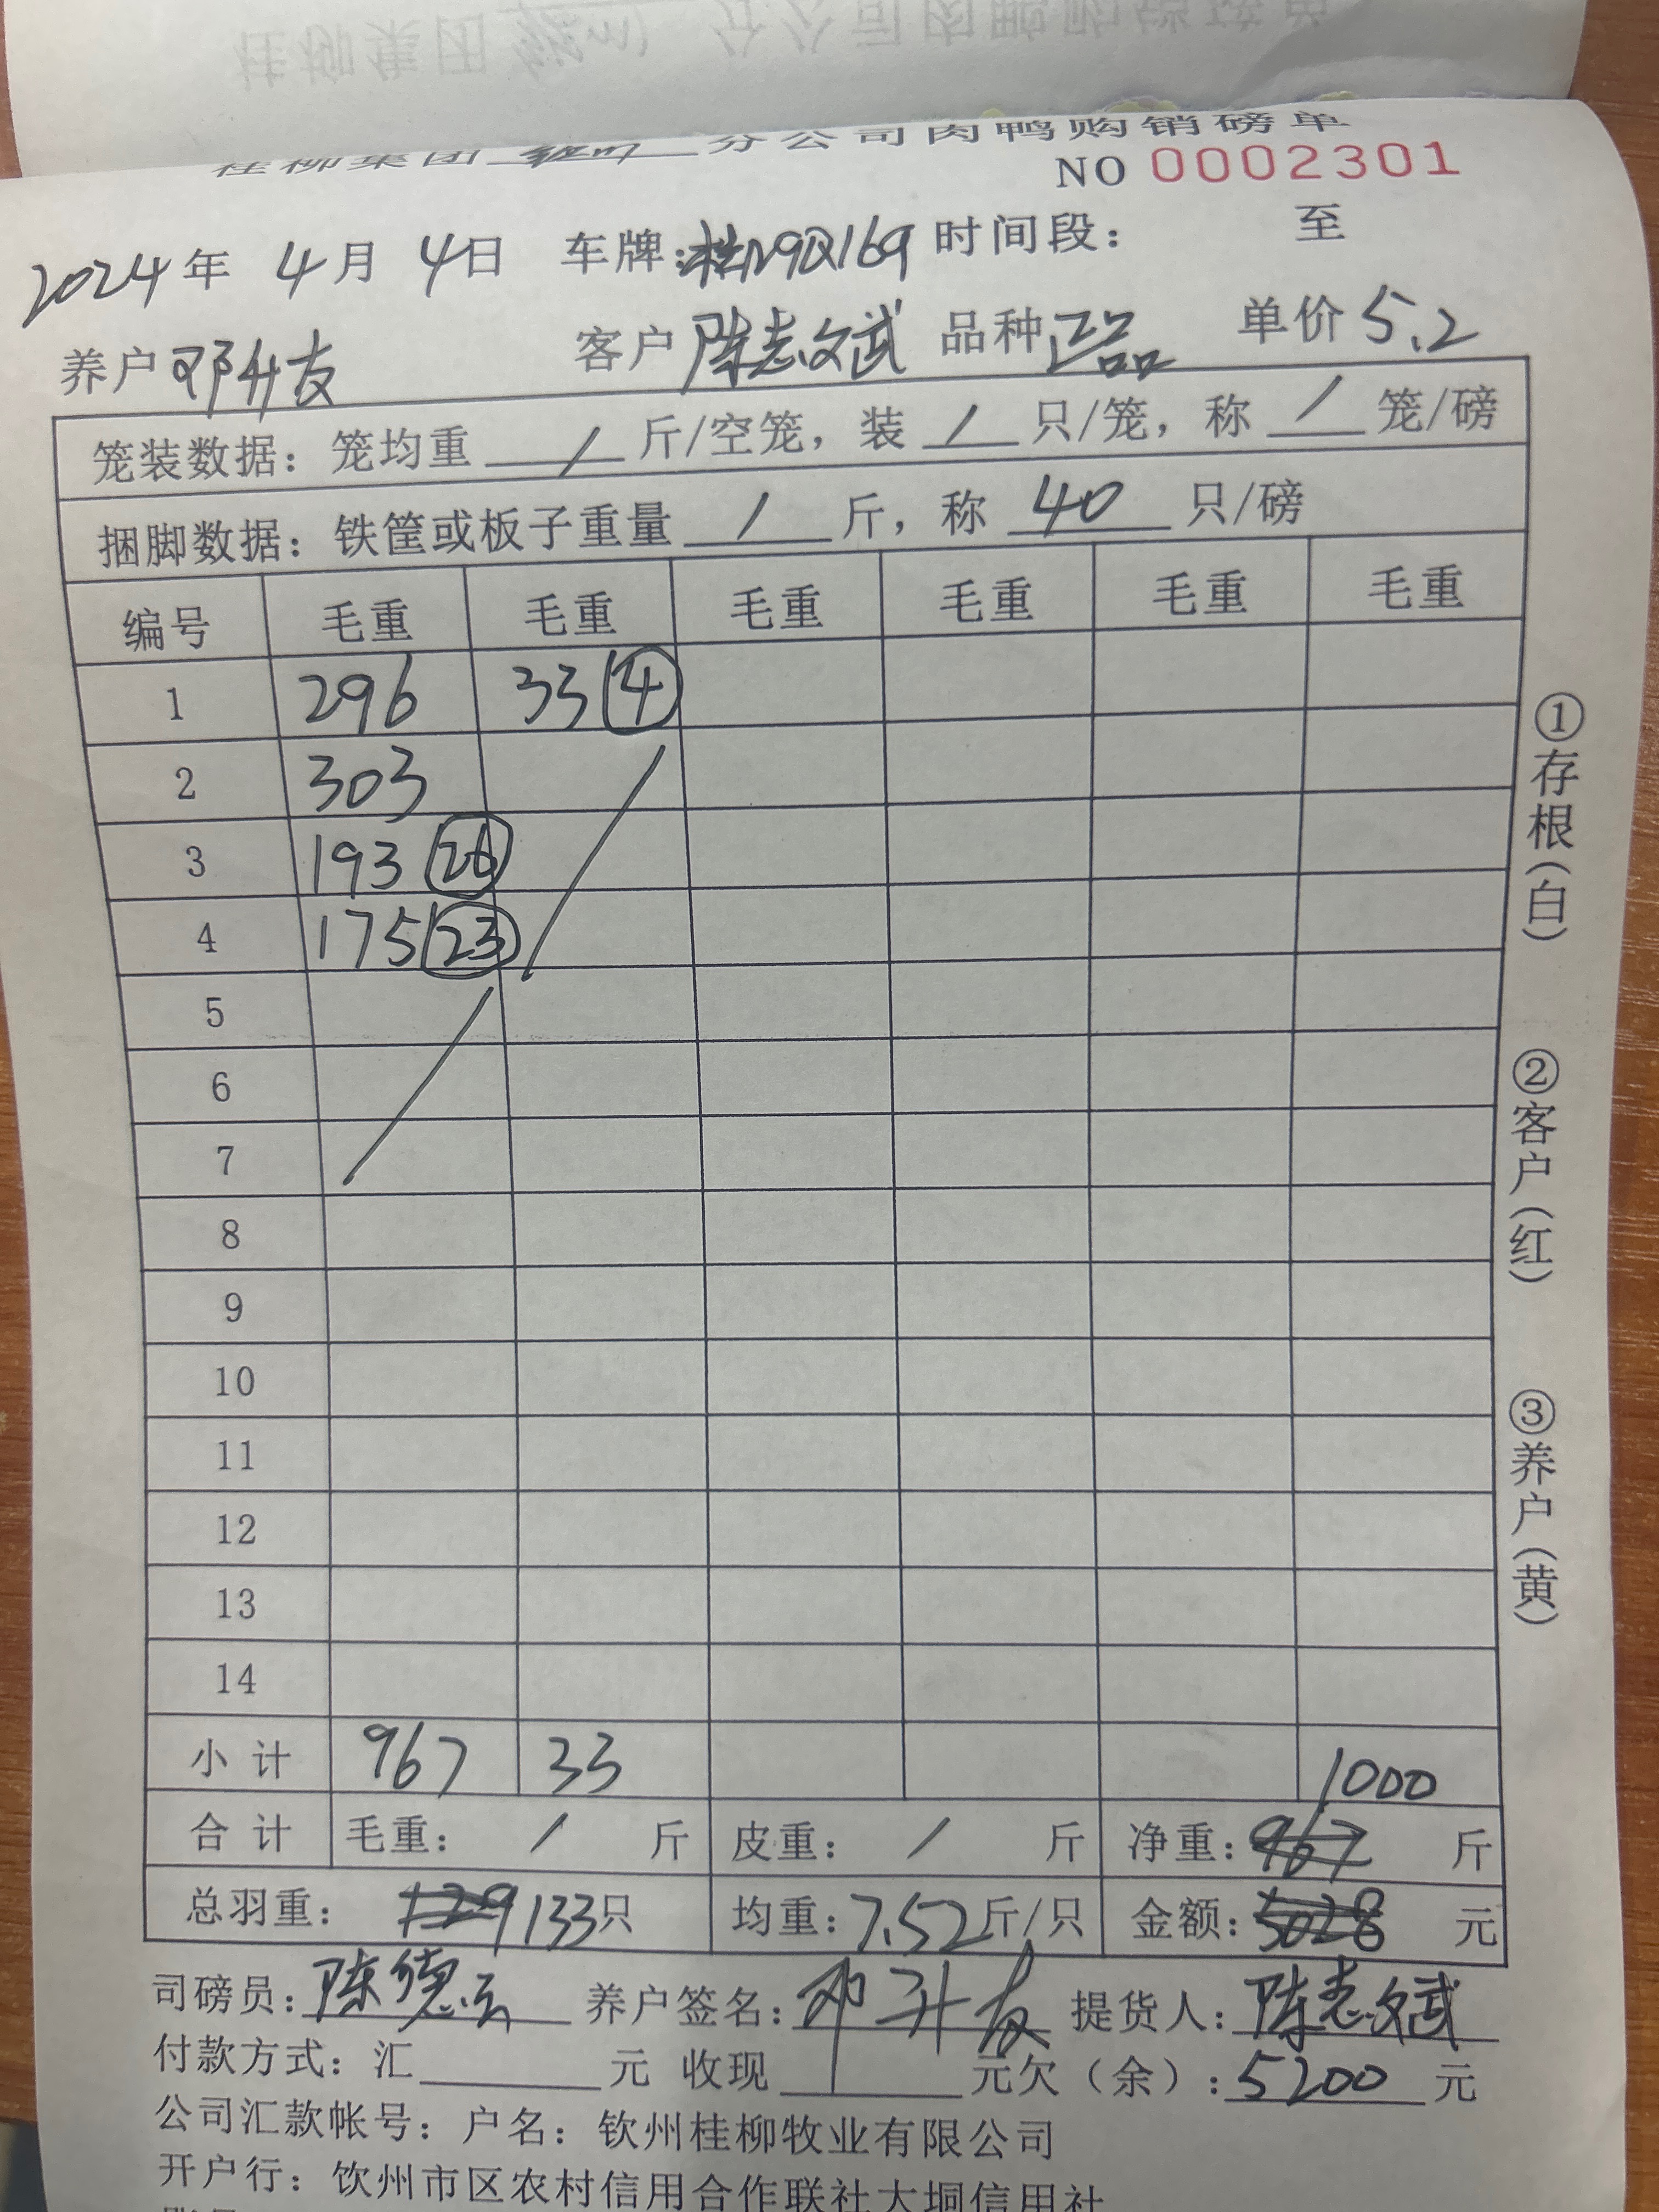 桂柳集团 分公司肉鸭购销磅单
NO 0002301
2024年 4月 4日 车牌: 时间段: 至
养户 邓升友 客户 陈志斌 品种 正品 单价 5.2
笼装数据: 笼均重 / 斤/空笼, 装 / 只/笼, 称 / 笼/磅
捆脚数据: 铁筐或板子重量 / 斤, 称 40 只/磅
编号 毛重 毛重 毛重 毛重 毛重 毛重
1 296 33 ④
2 303
3 193 (26)
4 175 (23)
5
6
7
8
9
10
11
12
13
14
小计 967 33 1000
合计 毛重: / 斤 皮重: / 斤 净重: 967 斤
总羽重: 129 133只 均重: 7.52斤/只 金额: 5028 元
司磅员: 陈德 养户签名: 邓升友 提货人: 陈志斌
付款方式: 汇 元 收现 元欠(余): 5200 元
公司汇款帐号: 户名: 钦州桂柳牧业有限公司
开户行: 钦州市区农村信用合作联社大垌信用社
①存根(白)
②客户(红)
③养户(黄)